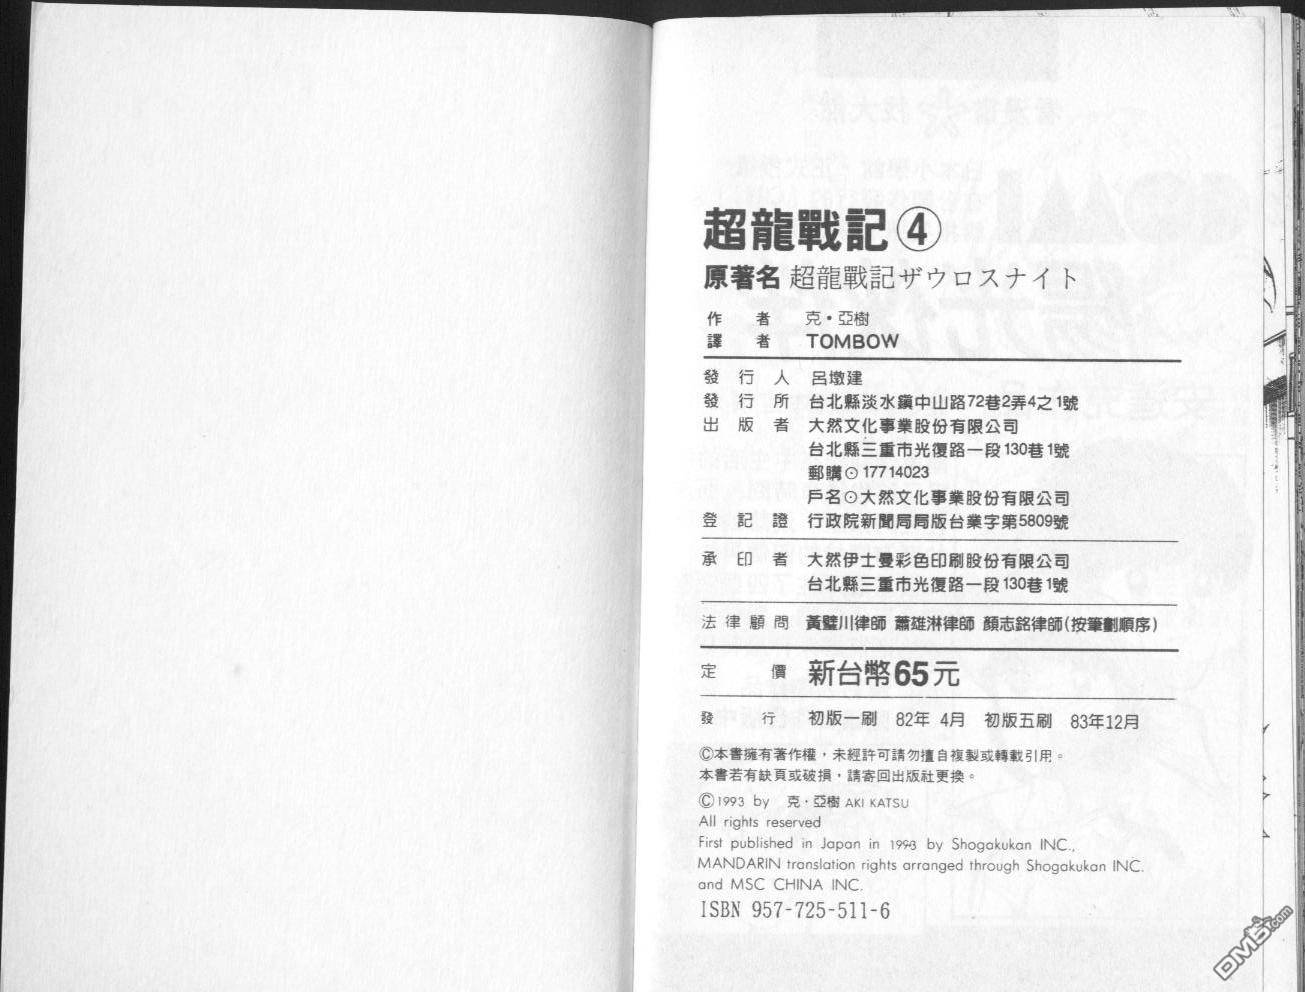 超龍戰記④
原著名 超龍戰記ザウロスナイト
作者 克・亞樹
譯者 TOMBOW
發行人 呂墩建
發行所 台北縣淡水鎮中山路72巷2弄4之1號
出版者 大然文化事業股份有限公司
台北縣三重市光復路一段130巷1號
郵購⊙17714023
戶名⊙大然文化事業股份有限公司
登記證 行政院新聞局局版台業字第5809號
承印者 大然伊士曼彩色印刷股份有限公司
台北縣三重市光復路一段130巷1號
法律顧問 黃璧川律師 蕭雄淋律師 顏志銘律師(按筆劃順序)
定價 新台幣65元
發行 初版一刷 82年 4月 初版五刷 83年12月
©本書擁有著作權，未經許可請勿擅自複製或轉載引用。
本書若有缺頁或破損，請寄回出版社更換。
©1993 by 克・亞樹 AKI KATSU
All rights reserved
First published in Japan in 1993 by Shogakukan INC.,
MANDARIN translation rights arranged through Shogakukan INC.
and MSC CHINA INC.
ISBN 957-725-511-6
DM5.com